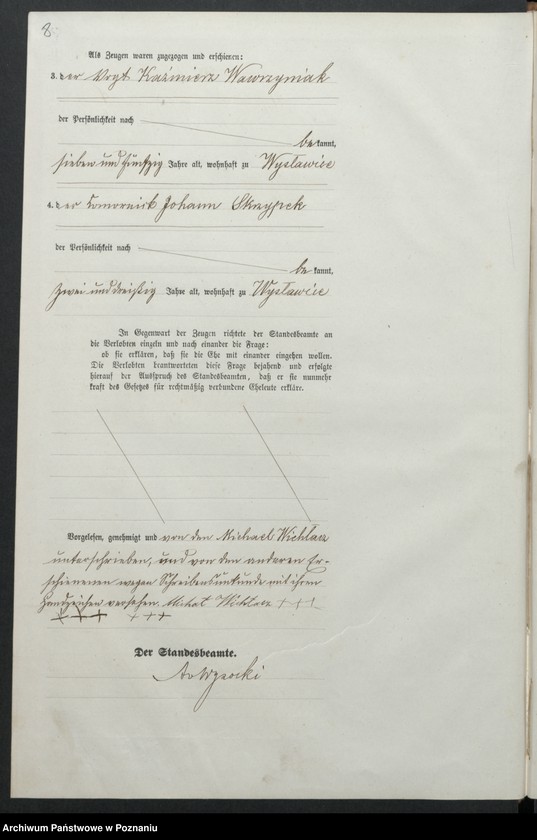 8.
Als Zeugen waren zugezogen und erschienen:
3. der Vogt Kaźmierz Wawrzyniak
der Persönlichkeit nach
bekannt,
sieben und fünfzig Jahre alt, wohnhaft zu Wysławice
4. der Komornik Johann Skrzypek
der Persönlichkeit nach
bekannt,
zwei und dreißig Jahre alt, wohnhaft zu Wysławice
In Gegenwart der Zeugen richtete der Standesbeamte an
die Verlobten einzeln und nach einander die Frage:
ob sie erklären, daß sie die Ehe mit einander eingehen wollen.
Die Verlobten beantworteten diese Frage bejahend und erfolgte
hierauf der Ausspruch des Standesbeamten, daß er sie nunmehr
kraft des Gesetzes für rechtmäßig verbundene Eheleute erkläre.
Vorgelesen, genehmigt und von den Michael Wichłacz
unterschrieben, und von den anderen Er-
schienenen wegen Schreibensunkunde mit ihren
Handzeichen versehen. Michał Wichłacz +++
+++ +++
Der Standesbeamte.
Archiwum Państwowe w Poznaniu